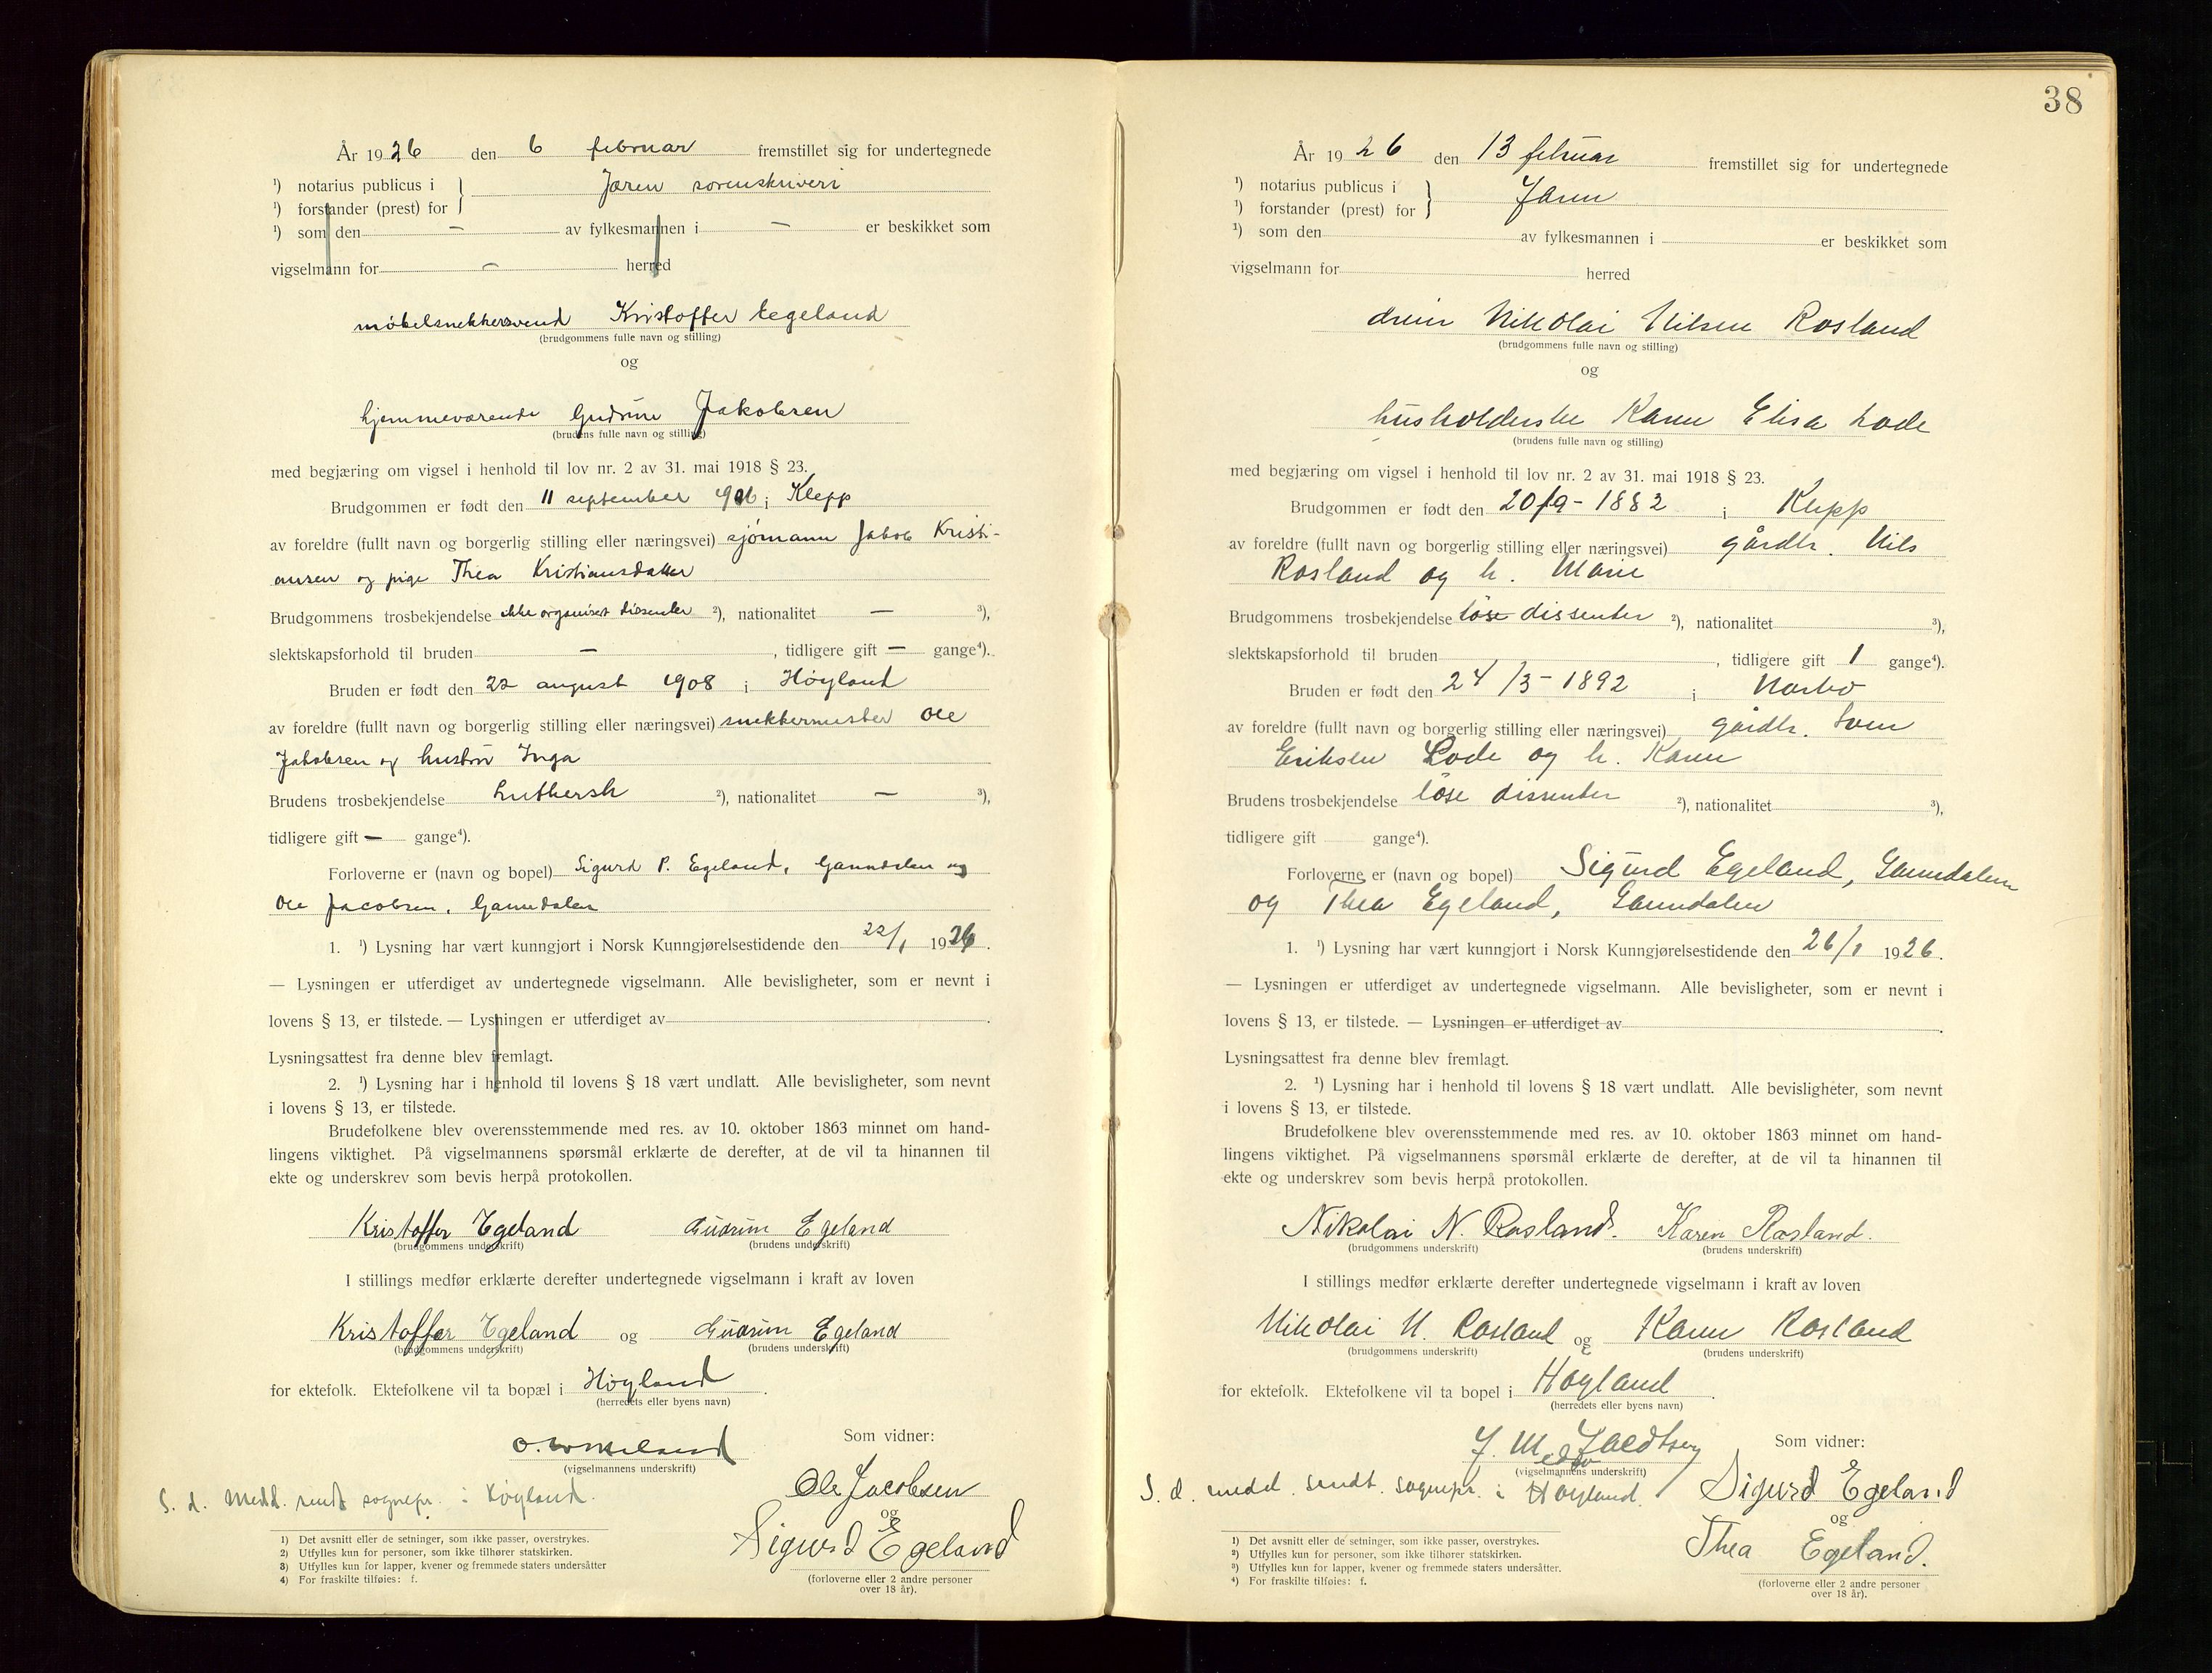 År 1926 den 6 februar fremstillet sig for undertegnede
¹) notarius publicus i } Jæren sorenskriveri
¹) forstander (prest) for
¹) som den — av fylkesmannen i — er beskikket som
vigselmann for — herred
møbelsnekkersvend Kristoffer Egeland
(brudgommens fulle navn og stilling)
og
hjemmeværende Gudrun Jakobsen
(brudens fulle navn og stilling)
med begjæring om vigsel i henhold til lov nr. 2 av 31. mai 1918 § 23.
Brudgommen er født den 11 september 1906 i Klepp
av foreldre (fullt navn og borgerlig stilling eller næringsvei) sjømann Jakob Kristi-
ansen og pige Thea Kristiansdatter
Brudgommens trosbekjendelse ikke organisert dissenter ²), nationalitet — ³),
slektskapsforhold til bruden — , tidligere gift — gange⁴).
Bruden er født den 22 august 1908 i Høyland
av foreldre (fullt navn og borgerlig stilling eller næringsvei) snekkermester Ole
Jakobsen og hustru Inga
Brudens trosbekjendelse Luthersk ²), nationalitet — ³),
tidligere gift — gange⁴).
Forloverne er (navn og bopel) Sigurd P. Egeland, Ganndalen og
Ole Jacobsen, Ganndalen
1. ¹) Lysning har vært kunngjort i Norsk Kunngjørelsestidende den 22/1 1926.
— Lysningen er utferdiget av undertegnede vigselmann. Alle bevisligheter, som er nevnt i
lovens § 13, er tilstede. — Lysningen er utferdiget av .
Lysningsattest fra denne blev fremlagt.
2. ¹) Lysning har i henhold til lovens § 18 vært undlatt. Alle bevisligheter, som nevnt
i lovens § 13, er tilstede.
Brudefolkene blev overensstemmende med res. av 10. oktober 1863 minnet om hand-
lingens viktighet. På vigselmannens spørsmål erklærte de derefter, at de vil ta hinannen til
ekte og underskrev som bevis herpå protokollen.
Kristoffer Egeland Gudrun Egeland
(brudgommens underskrift) (brudens underskrift)
I stillings medfør erklærte derefter undertegnede vigselmann i kraft av loven
Kristoffer Egeland og Gudrun Egeland
(brudgommens underskrift) (brudens underskrift)
for ektefolk. Ektefolkene vil ta bopæl i Høyland .
(herredets eller byens navn)
Som vidner:
(vigselmannens underskrift)
Ole Jacobsen
S. d. Medd. sendt sognepr. i Høyland.
og
Sigurd Egeland
(forloverne eller 2 andre personer
over 18 år).
1) Det avsnitt eller de setninger, som ikke passer, overstrykes.
2) Utfylles kun for personer, som ikke tilhører statskirken.
3) Utfylles kun for lapper, kvener og fremmede staters undersåtter
4) For fraskilte tilføies: f.
38
År 1926 den 13 februar fremstillet sig for undertegnede
¹) notarius publicus i } Jæren
¹) forstander (prest) for
¹) som den av fylkesmannen i er beskikket som
vigselmann for herred
Nikolai Nilsen Rosland
(brudgommens fulle navn og stilling)
og
husholderske Karen Elisa Lode
(brudens fulle navn og stilling)
med begjæring om vigsel i henhold til lov nr. 2 av 31. mai 1918 § 23.
Brudgommen er født den 20/9 - 1882 i Klepp
av foreldre (fullt navn og borgerlig stilling eller næringsvei) gårdbr. Nils
Rosland og h. Marie
Brudgommens trosbekjendelse løse dissenter ²), nationalitet ³),
slektskapsforhold til bruden , tidligere gift 1 gange⁴).
Bruden er født den 24/3 - 1892 i Nærbø
av foreldre (fullt navn og borgerlig stilling eller næringsvei) gårdbr. Sven
Eriksen Lode og h. Karen
Brudens trosbekjendelse løse dissenter ²), nationalitet ³),
tidligere gift gange⁴).
Forloverne er (navn og bopel) Sigurd Egeland, Ganndalen
og Thea Egeland, Ganndalen
1. ¹) Lysning har vært kunngjort i Norsk Kunngjørelsestidende den 26/1 1926.
— Lysningen er utferdiget av undertegnede vigselmann. Alle bevisligheter, som er nevnt i
lovens § 13, er tilstede. — Lysningen er utferdiget av .
Lysningsattest fra denne blev fremlagt.
2. ¹) Lysning har i henhold til lovens § 18 vært undlatt. Alle bevisligheter, som nevnt
i lovens § 13, er tilstede.
Brudefolkene blev overensstemmende med res. av 10. oktober 1863 minnet om hand-
lingens viktighet. På vigselmannens spørsmål erklærte de derefter, at de vil ta hinannen til
ekte og underskrev som bevis herpå protokollen.
Nikolai N. Rosland. Karen Rosland.
(brudgommens underskrift) (brudens underskrift)
I stillings medfør erklærte derefter undertegnede vigselmann i kraft av loven
Nikolai N. Rosland og Karen Rosland
(brudgommens underskrift) (brudens underskrift)
for ektefolk. Ektefolkene vil ta bopel i Høyland .
(herredets eller byens navn)
Som vidner:
(vigselmannens underskrift)
S. d. medd. sendt sognepr. i Høyland. Sigurd Egeland
og
Thea Egeland.
(forloverne eller 2 andre personer
over 18 år).
1) Det avsnitt eller de setninger, som ikke passer, overstrykes.
2) Utfylles kun for personer, som ikke tilhører statskirken.
3) Utfylles kun for lapper, kvener og fremmede staters undersåtter.
4) For fraskilte tilføies: f.